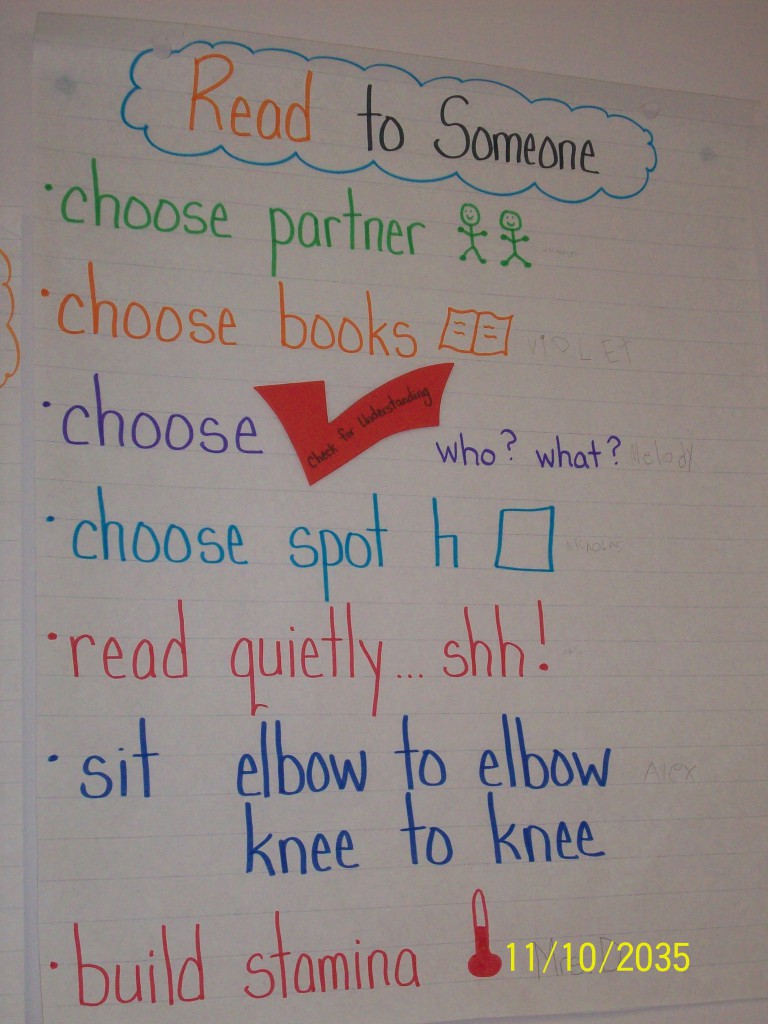 Read to Someone
·choose partner
·choose books VIOLET
·choose Check for Understanding who? what? Melody
·choose spot h
·read quietly... shh!
·sit elbow to elbow Alex
knee to knee
·build stamina 11/10/2035